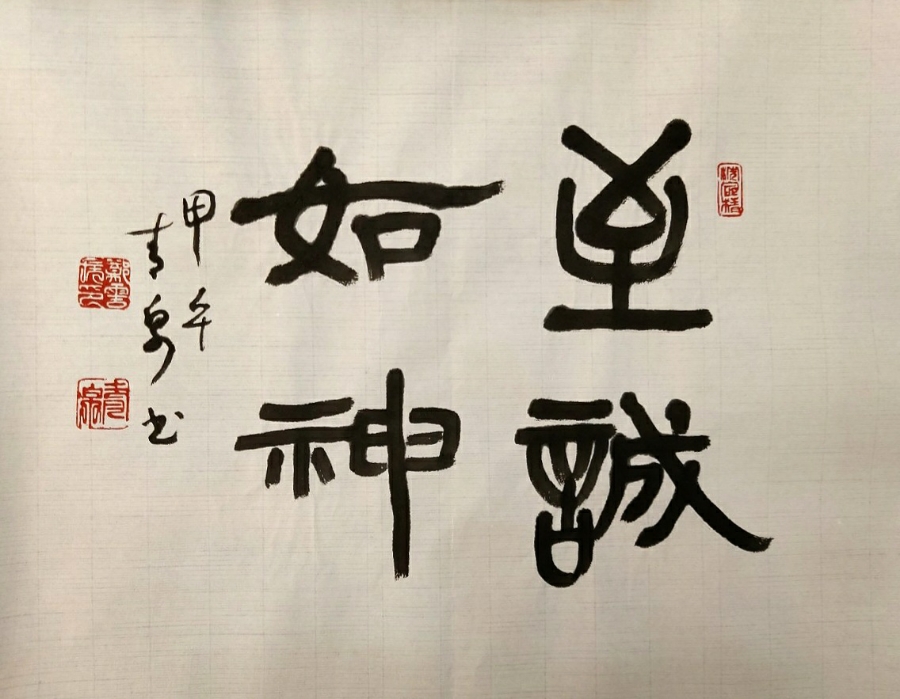 至誠
如神
甲午
青泉书